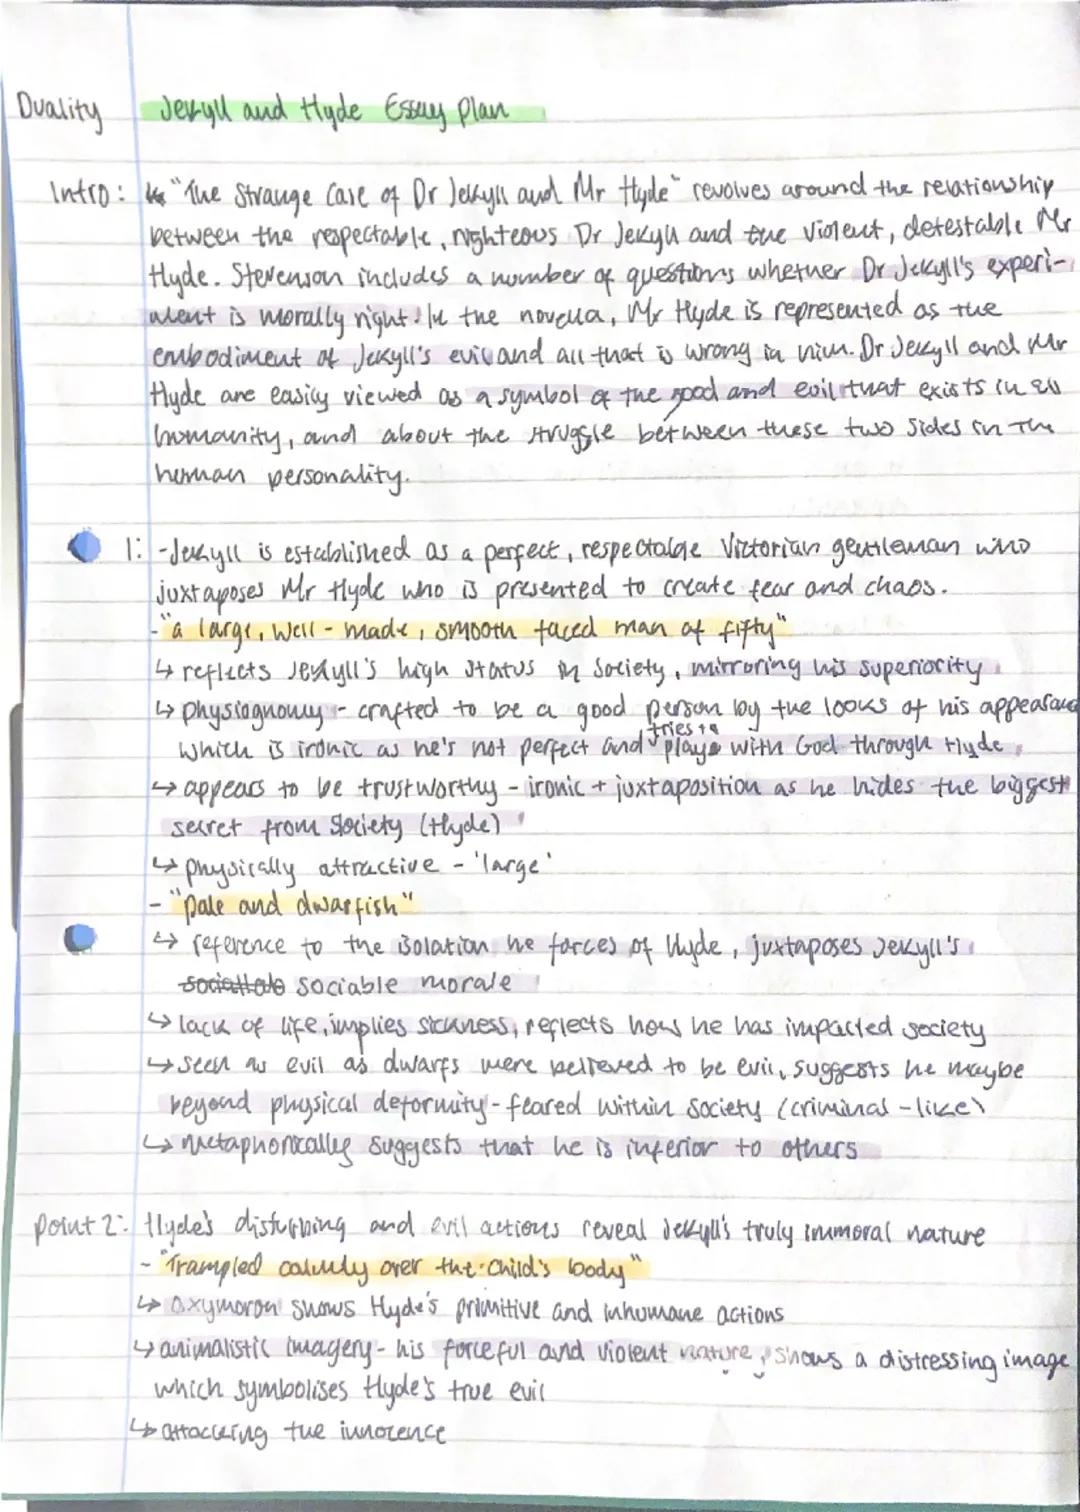 Duality Jekyll and Hyde Essay Plan
Intro: "The Strange Case of Dr Jekyll and Mr Hyde" revolves around the relationship
between the respectable, righteous Dr Jekyll and the violent, detestable Mr
Hyde. Stevenson includes a number of questions whether Dr Jekyll's experi-
ment is morally right. In the novella, Mr Hyde is represented as the
embodiment of Jekyll's evil and all that is wrong in him. Dr Jekyll and Mr
Hyde are easily viewed as a symbol of the good and evil that exists in all
humanity, and about the struggle between these two sides in the
human personality.
1: -Jekyll is established as a perfect, respectable Victorian gentleman who
juxtaposes Mr Hyde who is presented to create fear and chaos.
-"a large, well-made, smooth faced man of fifty"
↳ reflects Jekyll's high status in society, mirroring his superiority
↳ physiognomy - crafted to be a good person by the looks of his appearance
which is ironic as he's not perfect and tries to play with God through Hyde
↳ appears to be trustworthy - ironic + juxtaposition as he hides the biggest
secret from society (Hyde)
↳ physically attractive - 'large'
- "pale and dwarfish"
↳ reference to the isolation he forces of Hyde, juxtaposes Jekyll's
sociable morale
↳ lack of life, implies sickness, reflects how he has impacted society
↳ seen as evil as dwarfs were believed to be evil, suggests he maybe
beyond physical deformity - feared within society (criminal-like)
↳ metaphorically suggests that he is inferior to others
point 2: Hyde's disturbing and evil actions reveal Jekyll's truly immoral nature
- "Trampled calmly over the child's body"
↳ Oxymoron shows Hyde's primitive and inhumane actions
↳ animalistic imagery - his forceful and violent nature, shows a distressing image
which symbolises Hyde's true evil
↳ attacking the innocence